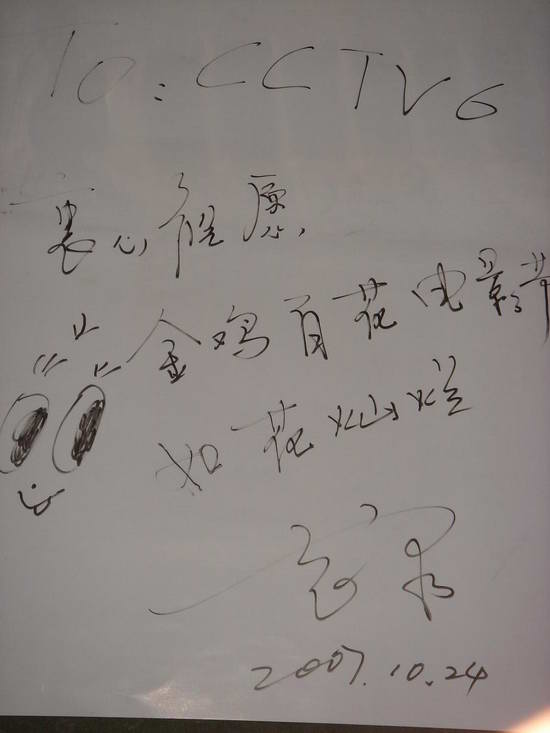 To: CCTV6
衷心祝愿
金鸡百花电影节
如花灿烂
2007.10.24